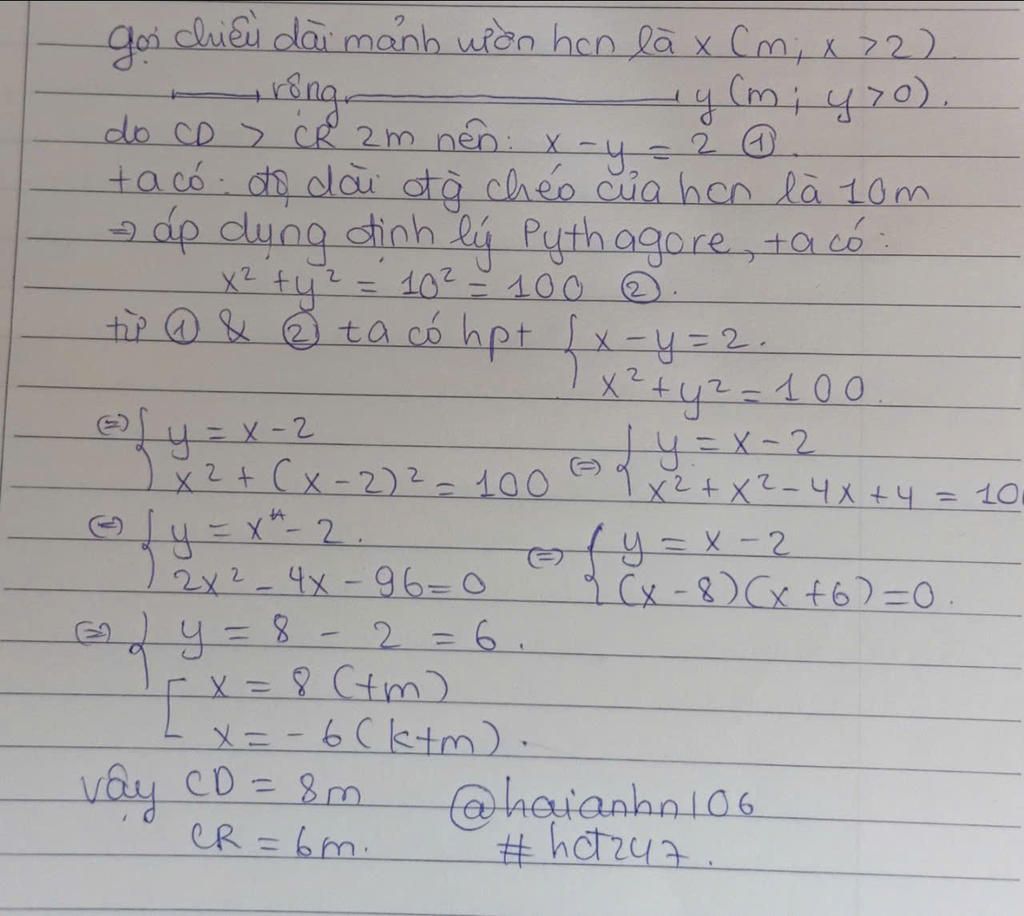 gọi chiều dài mảnh vườn hcn là x (m, x > 2)
rộng y (m; y > 0).
do CD > CR 2m nên: x - y = 2 ①.
ta có: độ dài đg chéo của hcn là 10m
⇒ áp dụng định lý Pythagore, ta có:
x² + y² = 10² = 100 ②.
từ ① & ② ta có hpt { x - y = 2.
x² + y² = 100.
⇔ { y = x - 2 ⇔ { y = x - 2
x² + (x - 2)² = 100 x² + x² - 4x + 4 = 10
⇔ { y = x - 2. ⇔ { y = x - 2
2x² - 4x - 96 = 0 (x - 8)(x + 6) = 0.
⇔ { y = 8 - 2 = 6.
[ x = 8 (tm)
x = - 6 (ktm).
vậy CD = 8m @haianhn106
CR = 6m. # hct247.